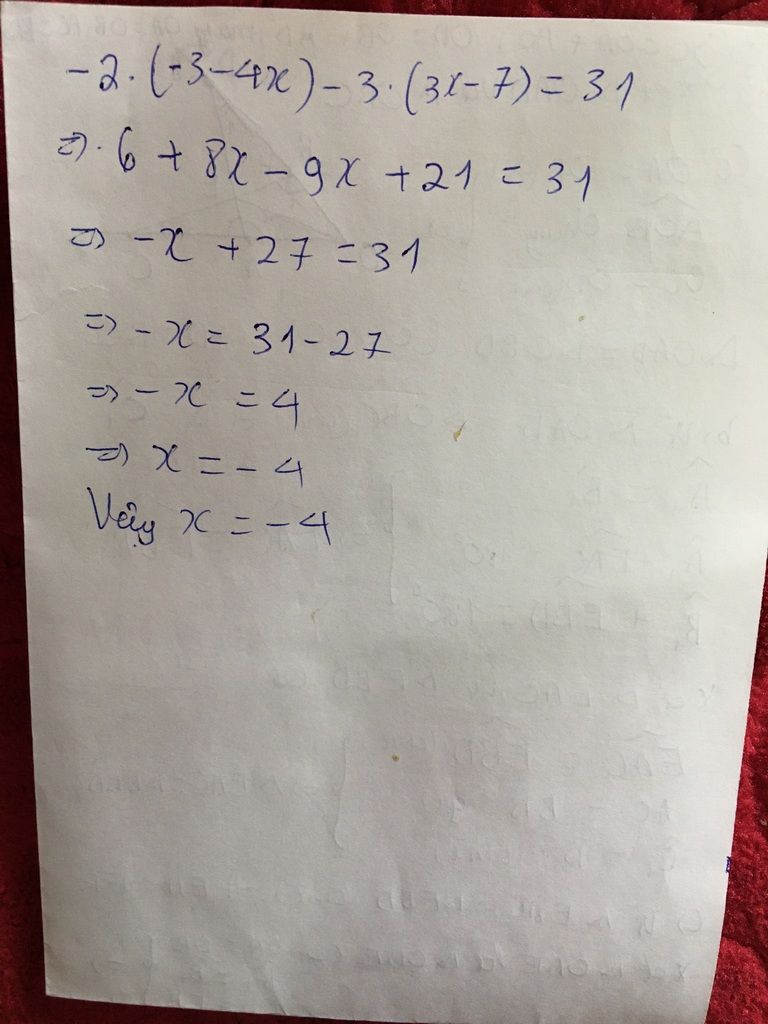 -2.(-3-4x)-3.(3x-7)=31
⇒. 6+8x-9x+21=31
⇒ -x+27=31
⇒ -x=31-27
⇒ -x=4
⇒ x=-4
Vậy x=-4